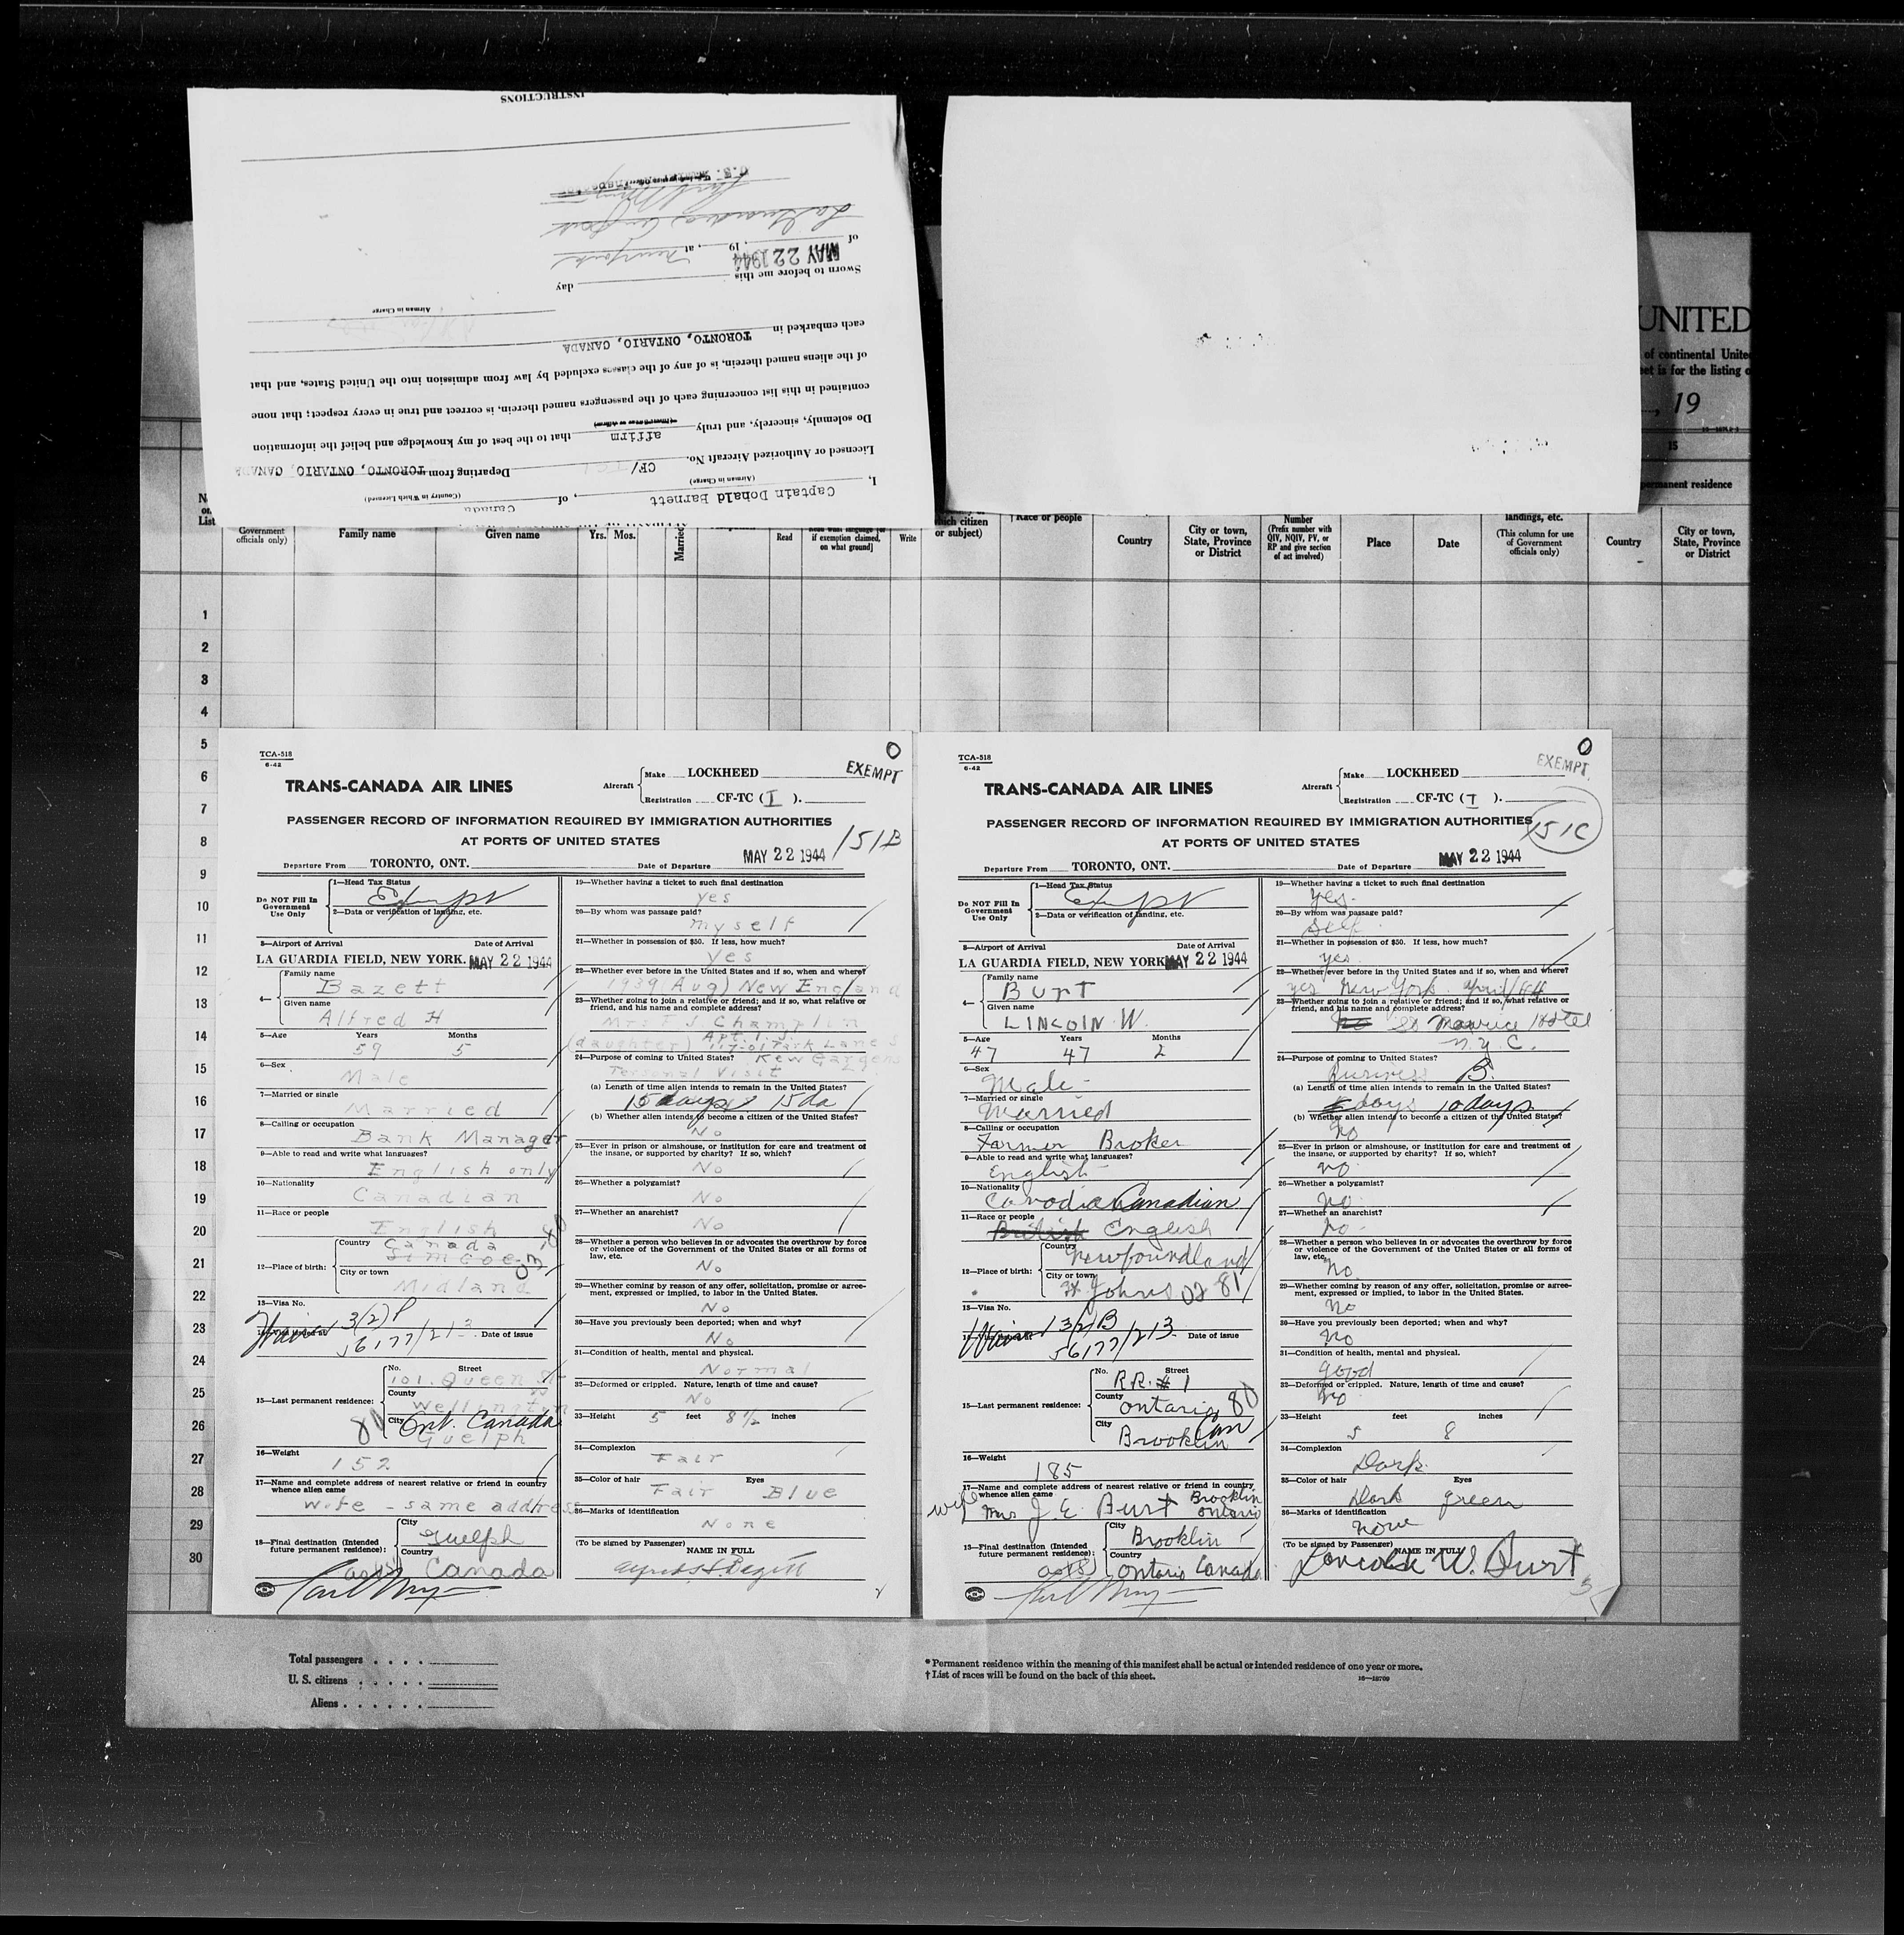 INSTRUCTIONS
I, Captain Donald Barnett, of Canada
(Airman in Charge) (Country in Which Licensed)
Licensed or Authorized Aircraft No. CF/ Departing from TORONTO, ONTARIO, CANADA
Do solemnly, sincerely, and truly affirm that to the best of my knowledge and belief the information
contained in this list concerning each of the passengers named therein, is correct and true in every respect; that none
of the aliens named therein, is of any of the classes excluded by law from admission into the United States, and that
each embarked in TORONTO, ONTARIO, CANADA
Airman in Charge
Sworn to before me this day
of MAY 22 1944, 19, at New York
La Guardia Airport
UNITED
of continental United
et is for the listing o
, 19
15
permanent residence
No.
on
List
Government
officials only)
Family name
Given name
Yrs. Mos.
Married
Read
if exemption claimed,
on what ground]
Write
which citizen
or subject)
†Race or people
Country
City or town,
State, Province
or District
Number
(Prefix number with
QIV, NQIV, PV, or
RP and give section
of act involved)
Place
Date
landings, etc.
(This column for use
of Government
officials only)
Country
City or town,
State, Province
or District
1
2
3
4
5
6
7
8
9
10
11
12
13
14
15
16
17
18
19
20
21
22
23
24
25
26
27
28
29
30
TCA-518
6-42
0
EXEMPT
TRANS-CANADA AIR LINES
Aircraft Make LOCKHEED
Registration CF-TC ( I ).
PASSENGER RECORD OF INFORMATION REQUIRED BY IMMIGRATION AUTHORITIES
AT PORTS OF UNITED STATES
151B
Departure From TORONTO, ONT. Date of Departure MAY 22 1944
Do NOT Fill In
Government
Use Only
1—Head Tax Status
Exempt
2—Data or verification of landing, etc.
3—Airport of Arrival Date of Arrival
LA GUARDIA FIELD, NEW YORK. MAY 22 1944
4— Family name
Bazett
Given name
Alfred H
5—Age Years Months
59 5
6—Sex
Male
7—Married or single
Married
8—Calling or occupation
Bank Manager
9—Able to read and write what languages?
English only
10—Nationality
Canadian
11—Race or people
English
12—Place of birth: Country Canada
Simcoe 03 80
City or town
Midland
13—Visa No.
3(2)P
56177/213
Date of issue
15—Last permanent residence:
No. Street
101 Queen St
County
Wellington
City Ont. Canada
80 Guelph
16—Weight
152
17—Name and complete address of nearest relative or friend in country
whence alien came
Wife - same address
18—Final destination (Intended
future permanent residence):
City
Guelph
Country
Canada
19—Whether having a ticket to such final destination
yes
20—By whom was passage paid?
myself
21—Whether in possession of $50. If less, how much?
yes
22—Whether ever before in the United States and if so, when and where?
1939 (Aug) New England
23—Whether going to join a relative or friend; and if so, what relative or
friend, and his name and complete address?
Mrs F J Champlin
(daughter) Apt. 1.J.
117-01 Park Lane S
24—Purpose of coming to United States? Kew Gardens
Personal Visit
(a) Length of time alien intends to remain in the United States?
15 days 15 da
(b) Whether alien intends to become a citizen of the United States?
No
25—Ever in prison or almshouse, or institution for care and treatment of
the insane, or supported by charity? If so, which?
No
26—Whether a polygamist?
No
27—Whether an anarchist?
No
28—Whether a person who believes in or advocates the overthrow by force
or violence of the Government of the United States or all forms of
law, etc.
No
29—Whether coming by reason of any offer, solicitation, promise or agree-
ment, expressed or implied, to labor in the United States.
No
30—Have you previously been deported; when and why?
No
31—Condition of health, mental and physical.
Normal
32—Deformed or crippled. Nature, length of time and cause?
No
33—Height 5 feet 8 1/2 inches
34—Complexion
Fair
35—Color of hair Eyes
Fair Blue
36—Marks of identification
None
(To be signed by Passenger)
NAME IN FULL
Alfred H. Bazett
TCA-518
6-42
0
EXEMPT
TRANS-CANADA AIR LINES
Aircraft Make LOCKHEED
Registration CF-TC ( I ).
PASSENGER RECORD OF INFORMATION REQUIRED BY IMMIGRATION AUTHORITIES
AT PORTS OF UNITED STATES
151C
Departure From TORONTO, ONT. Date of Departure MAY 22 1944
Do NOT Fill In
Government
Use Only
1—Head Tax Status
Exempt
2—Data or verification of landing, etc.
3—Airport of Arrival Date of Arrival
LA GUARDIA FIELD, NEW YORK MAY 22 1944
4— Family name
Burt
Given name
LINCOLN W.
5—Age Years Months
47 47 2
6—Sex
Male
7—Married or single
Married
8—Calling or occupation
Farmer Broker
9—Able to read and write what languages?
English
10—Nationality
Canadian Canadian
11—Race or people
British English
12—Place of birth: Country
Newfoundland
City or town
St Johns 02 81
13—Visa No.
3(2)B
56177/213
Date of issue
15—Last permanent residence:
No. Street
RR. # 1
County
Ontario 80
City Can
Brooklin
16—Weight
185
17—Name and complete address of nearest relative or friend in country
whence alien came
wife Mrs J. E. Burt Brooklin
Ontario
18—Final destination (Intended
future permanent residence):
City
Brooklin
Country
Ontario Canada
19—Whether having a ticket to such final destination
yes.
20—By whom was passage paid?
Self
21—Whether in possession of $50. If less, how much?
yes
22—Whether ever before in the United States and if so, when and where?
yes New York. April/44
23—Whether going to join a relative or friend; and if so, what relative or
friend, and his name and complete address?
no St Maurice Hotel
N.Y.C.
24—Purpose of coming to United States?
Business B.
(a) Length of time alien intends to remain in the United States?
days 10 days.
(b) Whether alien intends to become a citizen of the United States?
no
25—Ever in prison or almshouse, or institution for care and treatment of
the insane, or supported by charity? If so, which?
no
26—Whether a polygamist?
no
27—Whether an anarchist?
no
28—Whether a person who believes in or advocates the overthrow by force
or violence of the Government of the United States or all forms of
law, etc.
no
29—Whether coming by reason of any offer, solicitation, promise or agree-
ment, expressed or implied, to labor in the United States.
no
30—Have you previously been deported; when and why?
no
31—Condition of health, mental and physical.
good
32—Deformed or crippled. Nature, length of time and cause?
no
33—Height feet inches
5 8
34—Complexion
Dark
35—Color of hair Eyes
Dark green
36—Marks of identification
none
(To be signed by Passenger)
NAME IN FULL
Lincoln W. Burt
Total passengers . . . .
U. S. citizens . . . . .
Aliens . . . . . .
* Permanent residence within the meaning of this manifest shall be actual or intended residence of one year or more.
† List of races will be found on the back of this sheet.